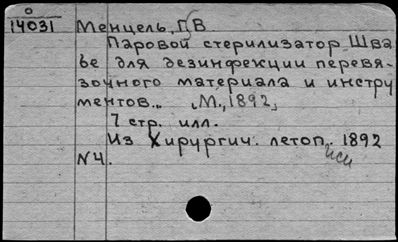 О
14031 Менцель, Г В
Паровой стерилизатор Шва
бе для дезинфекции перевя-
зочного материала и инстру
ментов.. М., 1892,
7 стр. илл.
Из Хирургич. летоп. 1892
N4.